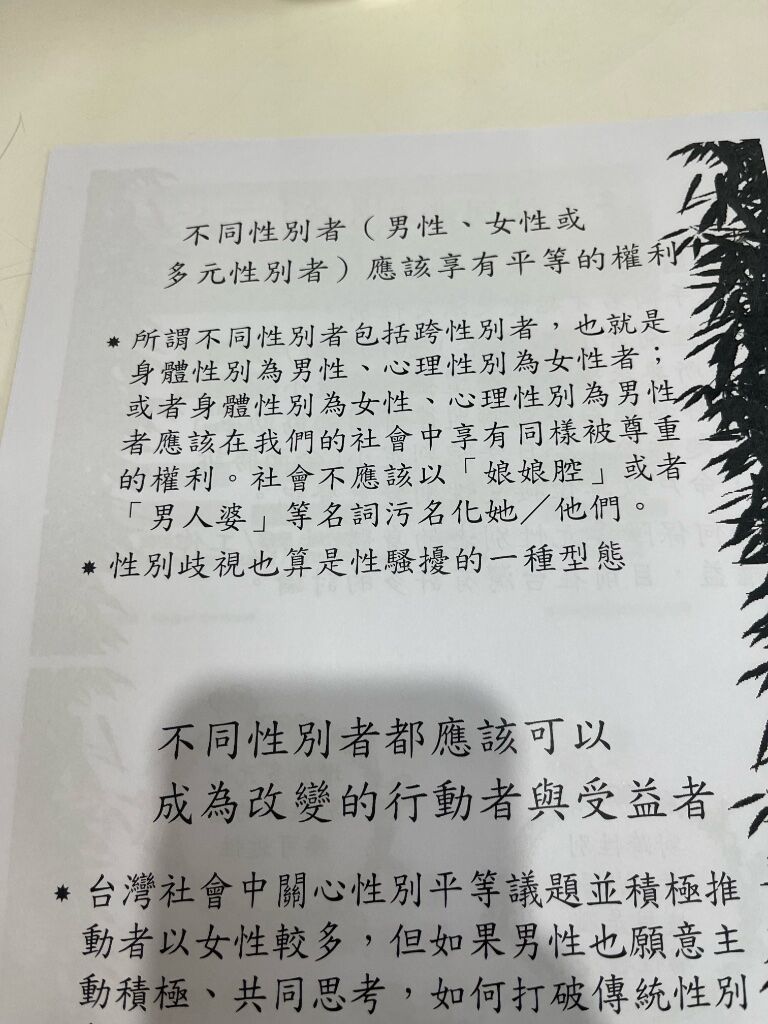 不同性別者（男性、女性或
多元性別者）應該享有平等的權利
✷ 所謂不同性別者包括跨性別者，也就是
身體性別為男性、心理性別為女性者；
或者身體性別為女性、心理性別為男性
者應該在我們的社會中享有同樣被尊重
的權利。社會不應該以「娘娘腔」或者
「男人婆」等名詞污名化她／他們。
✷ 性別歧視也算是性騷擾的一種型態
不同性別者都應該可以
成為改變的行動者與受益者
✷ 台灣社會中關心性別平等議題並積極推
動者以女性較多，但如果男性也願意主
動積極、共同思考，如何打破傳統性別